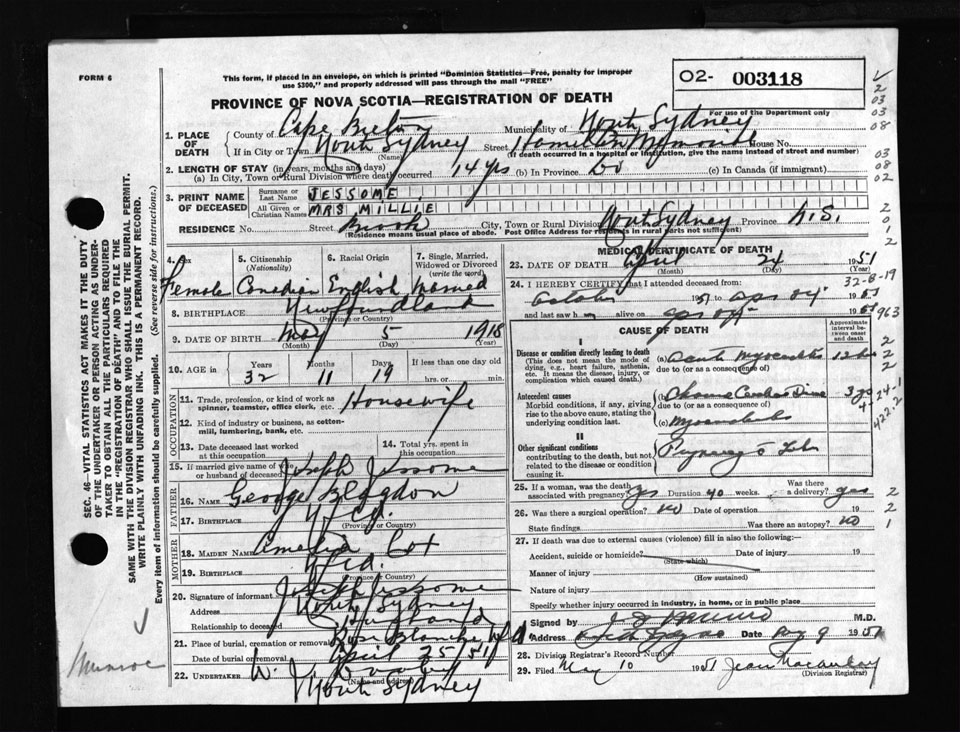 FORM 6
This form, if placed in an envelope, on which is printed "Dominion Statistics—Free, penalty for improper
use $300," and properly addressed will pass through the mail "FREE"
O2- 003118
For use of the Department only
PROVINCE OF NOVA SCOTIA—REGISTRATION OF DEATH
1. PLACE OF DEATH County of Cape Breton Municipality of North Sydney
If in City or Town North Sydney (Name) Street Hamilton Memorial House No.
(If death occurred in a hospital or institution, give the name instead of street and number)
2. LENGTH OF STAY (in years, months and days)
(a) In City, Town or Rural Division where death occurred 14 yrs (b) In Province Do (c) In Canada (if immigrant)
3. PRINT NAME OF DECEASED Surname or Last Name JESSOME
All Given or Christian Names MRS MILLIE
RESIDENCE No. Street Brook City, Town or Rural Division North Sydney Province N.S.
(Residence means usual place of abode. Post Office Address for residents in rural parts not sufficient)
4. Sex Female
5. Citizenship (Nationality) Canadian
6. Racial Origin English
7. Single, Married, Widowed or Divorced (write the word) Married
8. BIRTHPLACE Newfoundland
(Province or Country)
9. DATE OF BIRTH May 5 1918
(Month) (Day) (Year)
10. AGE in Years 32 Months 11 Days 19 If less than one day old
hrs. or min.
OCCUPATION
11. Trade, profession, or kind of work as spinner, teamster, office clerk, etc. Housewife
12. Kind of industry or business, as cotton-mill, lumbering, bank, etc.
13. Date deceased last worked at this occupation
14. Total yrs. spent in this occupation
15. If married give name of wife or husband of deceased Joseph Jessome
FATHER
16. NAME George Blagdon
17. BIRTHPLACE Nfld.
(Province or Country)
MOTHER
18. MAIDEN NAME Amelia Cox
19. BIRTHPLACE Nfld.
(Province or Country)
20. Signature of informant Joseph Jessome
Address North Sydney
Relationship to deceased Husband
21. Place of burial, cremation or removal Rose Blanche, Nfld
Date of burial or removal April 25/51
22. UNDERTAKER W.
North Sydney
(Name and address)
MEDICAL CERTIFICATE OF DEATH
23. DATE OF DEATH April 24 1951
(Month) (Day) (Year)
24. I HEREBY CERTIFY that I attended deceased from:
October 1951 to 19
and last saw h alive on 19
32-8-19
963
CAUSE OF DEATH
Approximate interval between onset and death
I
Disease or condition directly leading to death
(This does not mean the mode of dying, e.g., heart failure, asthenia, etc. It means the disease, injury, or complication which caused death.)
(a) Acute Myocarditis
due to (or as a consequence of)
Antecedent causes
Morbid conditions, if any, giving rise to the above cause, stating the underlying condition last.
(b) Chronic
due to (or as a consequence of)
(c)
II
Other significant conditions
contributing to the death, but not related to the disease or condition causing it.
25. If a woman, was the death associated with pregnancy? yes Duration 40 weeks. Was there a delivery? yes
26. Was there a surgical operation? NO Date of operation 19
State findings Was there an autopsy? NO
27. If death was due to external causes (violence) fill in also the following:
Accident, suicide or homicide? Date of injury 19
(State which)
Manner of injury
(How sustained)
Nature of injury
Specify whether injury occurred in industry, in home, or in public place
Signed by M.D.
Address North Sydney Date 9 1951
28. Division Registrar's Record Number
29. Filed May 10 1951 Jean Macaulay
(Division Registrar)
SEC. 46—VITAL STATISTICS ACT MAKES IT THE DUTY
OF THE UNDERTAKER OR PERSON ACTING AS UNDER-
TAKER TO OBTAIN ALL THE PARTICULARS REQUIRED
IN THE "REGISTRATION OF DEATH" AND TO FILE THE
SAME WITH THE DIVISION REGISTRAR WHO SHALL ISSUE THE BURIAL PERMIT.
WRITE PLAINLY WITH UNFADING INK. THIS IS A PERMANENT RECORD.
Every item of information should be carefully supplied. (See reverse side for instructions.)
Munroe
2
03
03
08
03
08
02
2
0
1
2